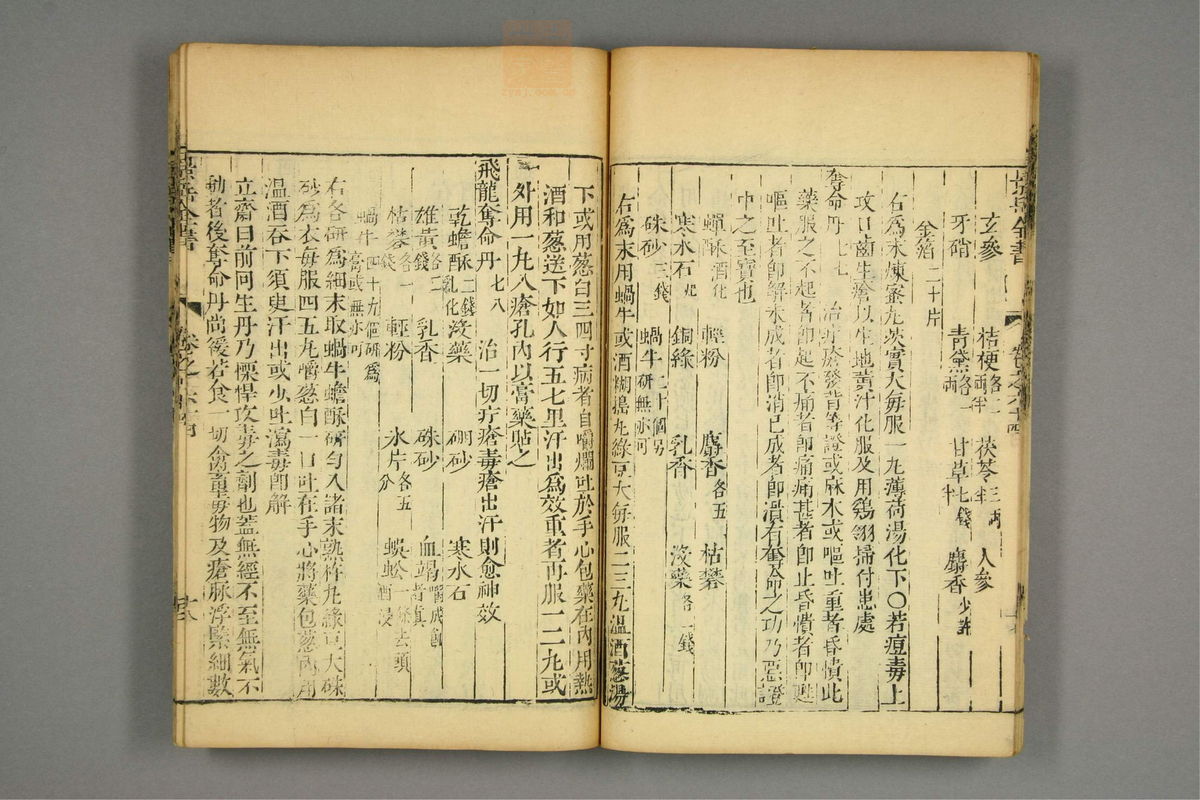 景岳全書
卷之六十四
玄參 桔梗各二兩半 茯苓三兩半 人參
牙硝 青黛各一兩 甘草七錢半 麝香少許
金箔二十片
右爲末煉蜜丸芡實大每服一丸薄荷湯化下〇若痘毒上
攻口齒生瘡以生地黃汁化服及用鷄翎掃付患處
奪命丹七七 治疔瘡發背等證或麻木或嘔吐重者昏憒此
藥服之不起者即起不痛者即痛痛甚者即止昏憒者即甦
嘔吐者即解未成者即消已成者即潰有奪命之功乃惡證
中之至寶也
蟬酥酒化 輕粉 麝香各五 枯礬
寒水石煅 銅綠 乳香 沒藥各一錢
硃砂三錢 蝸牛二十個另研無亦可
右爲末用蝸牛或酒糊搗丸綠豆大每服二三丸溫酒葱湯
下或用葱白三四寸病者自嚼爛吐於手心包藥在內用熱
酒和葱送下如人行五七里汗出爲效重者再服一二丸或
外用一丸入瘡孔內以膏藥貼之
飛龍奪命丹七八 治一切疔瘡毒瘡出汗則愈神效
乾蟾酥二錢乳化 沒藥 硼砂 寒水石
雄黃各二錢 乳香 硃砂 血竭嚼成餅者真
枯礬各一錢 輕粉 氷片各五分 蜈蚣一條去頭酒浸
蝸牛四十九個研爲膏或無亦可
右各研爲細末取蝸牛蟾酥研勻入諸末熟杵丸綠豆大硃
砂爲衣每服四五丸嚼葱白一口吐在手心將藥包葱內用
溫酒吞下須臾汗出或少吐瀉毒即解
立齋曰前囘生丹乃慓悍攻毒之劑也蓋無經不至無氣不
動者後奪命丹尚緩若食一切禽畜毒物及瘡脉浮緊細數
景岳全書
卷之六十四